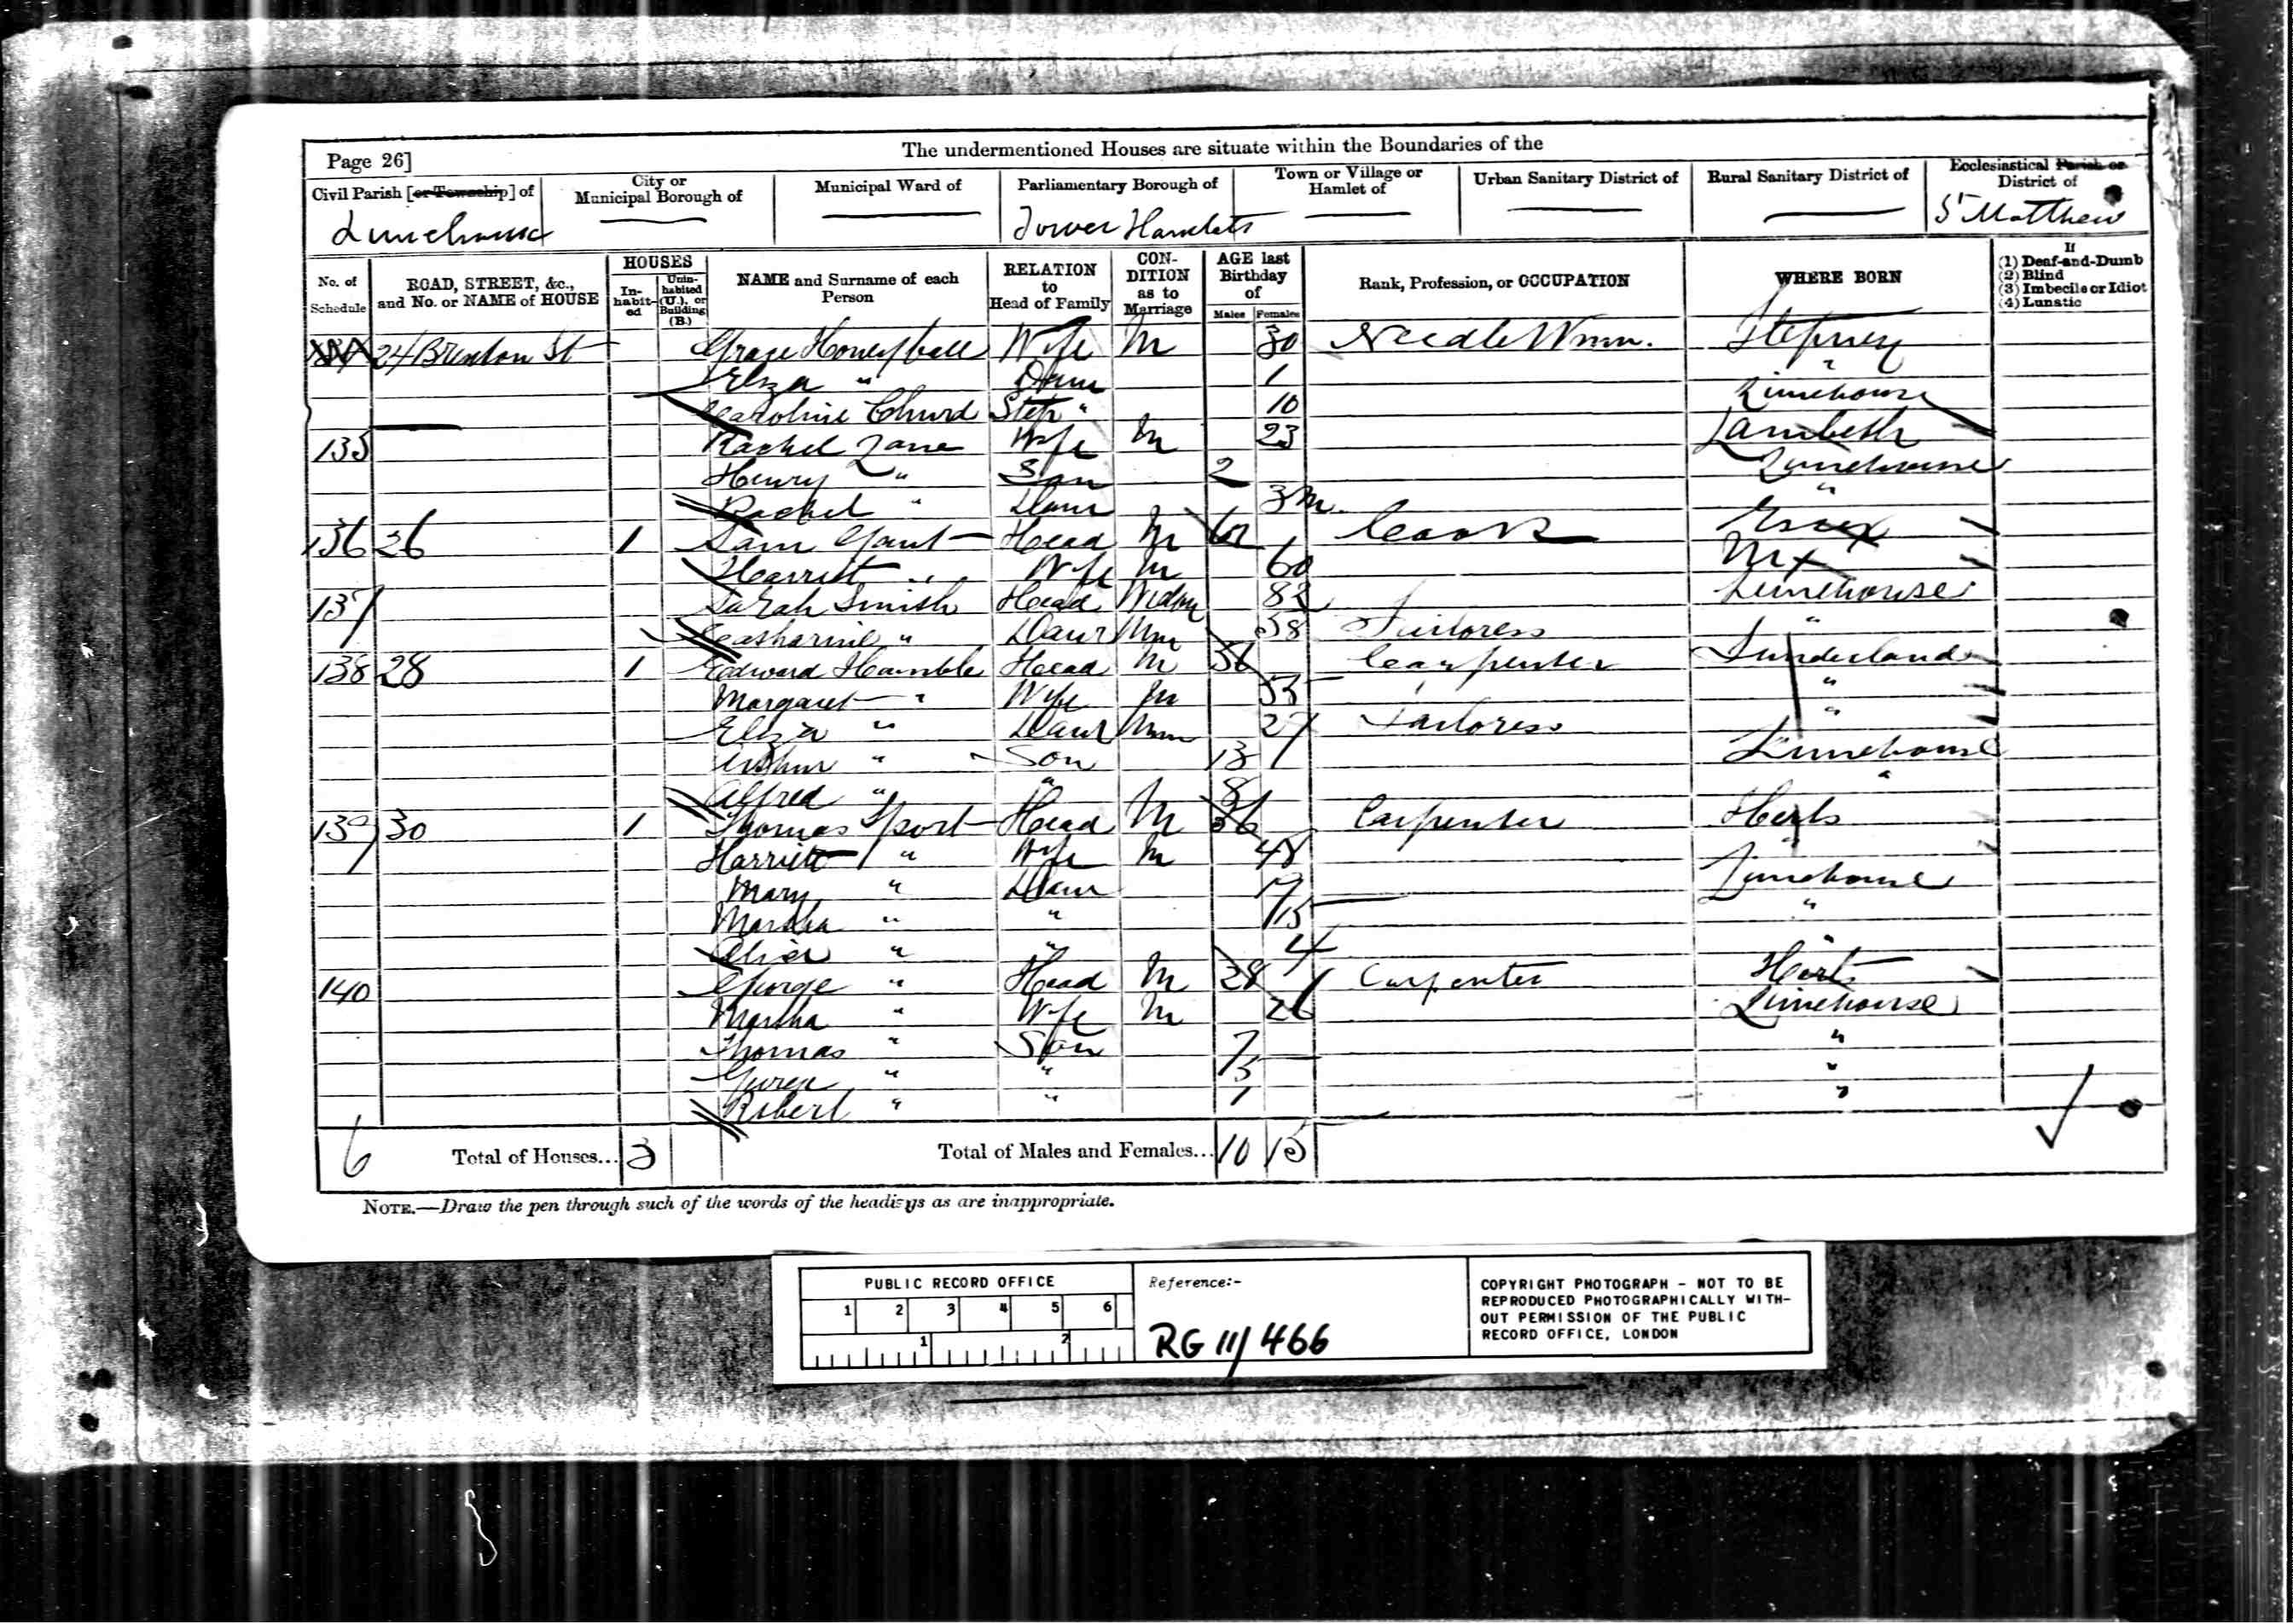 Page 26] The undermentioned Houses are situate within the Boundaries of the
Civil Parish [or Township] of City or Municipal Borough of Municipal Ward of Parliamentary Borough of Town or Village or Hamlet of Urban Sanitary District of Rural Sanitary District of Ecclesiastical Parish or District of
Limehouse Tower Hamlets St Matthew
No. of Schedule ROAD, STREET, &c., and No. or NAME of HOUSE HOUSES In-habit-ed Unin-habited (U.), or Building (B.) NAME and Surname of each Person RELATION to Head of Family CON-DITION as to Marriage AGE last Birthday of Males Females Rank, Profession, or OCCUPATION WHERE BORN If (1) Deaf-and-Dumb (2) Blind (3) Imbecile or Idiot (4) Lunatic
24 Brenton St Grace Honeyball Wife M 30 Needle Wmn. Stepney
Eliza " Daur 1 "
Caroline Churd Step " 10 Limehouse
135 Rachel Lane Wife M 23 Lambeth
Henry " Son 2 Limehouse
Rachel " Daur 3m "
136 26 1 Sam Gant Head M Cook Essex
Harriet " Wife M 60 Mx
137 Sarah Smith Head Widow 83 Limehouse
Catharine " Daur Unm 38 Tailoress "
138 28 1 Edward Hamble Head M 56 Carpenter Sunderland
Margaret " Wife M 55 "
Eliza " Daur Unm 27 Tailoress "
Arthur " Son 13 Limehouse
Alfred " " 8 "
139 30 1 Thomas Sport Head M 56 Carpenter Herts
Harriett " Wife M 48 "
Mary " Daur 17 Limehouse
Martha " " 15 "
Alice " " 4 "
140 George " Head M 28 Carpenter Herts
Martha " Wife M 26 Limehouse
Thomas " Son 7 "
George " " 5 "
Robert " " 1 "
6 Total of Houses... 3 Total of Males and Females... 10 15
NOTE.—Draw the pen through such of the words of the headings as are inappropriate.
PUBLIC RECORD OFFICE
1 2 3 4 5 6
1 2
Reference:-
RG 11/466
COPYRIGHT PHOTOGRAPH - NOT TO BE
REPRODUCED PHOTOGRAPHICALLY WITH-
OUT PERMISSION OF THE PUBLIC
RECORD OFFICE, LONDON